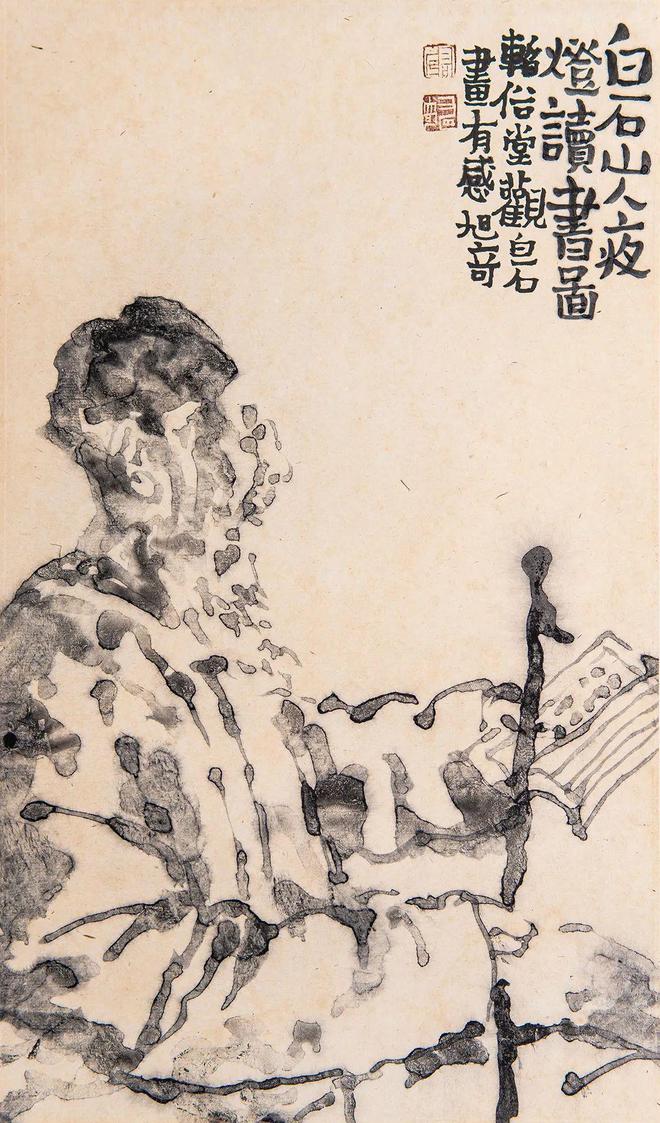 白石山人夜
燈讀書圖
輶俗堂觀白石
畫有感旭奇